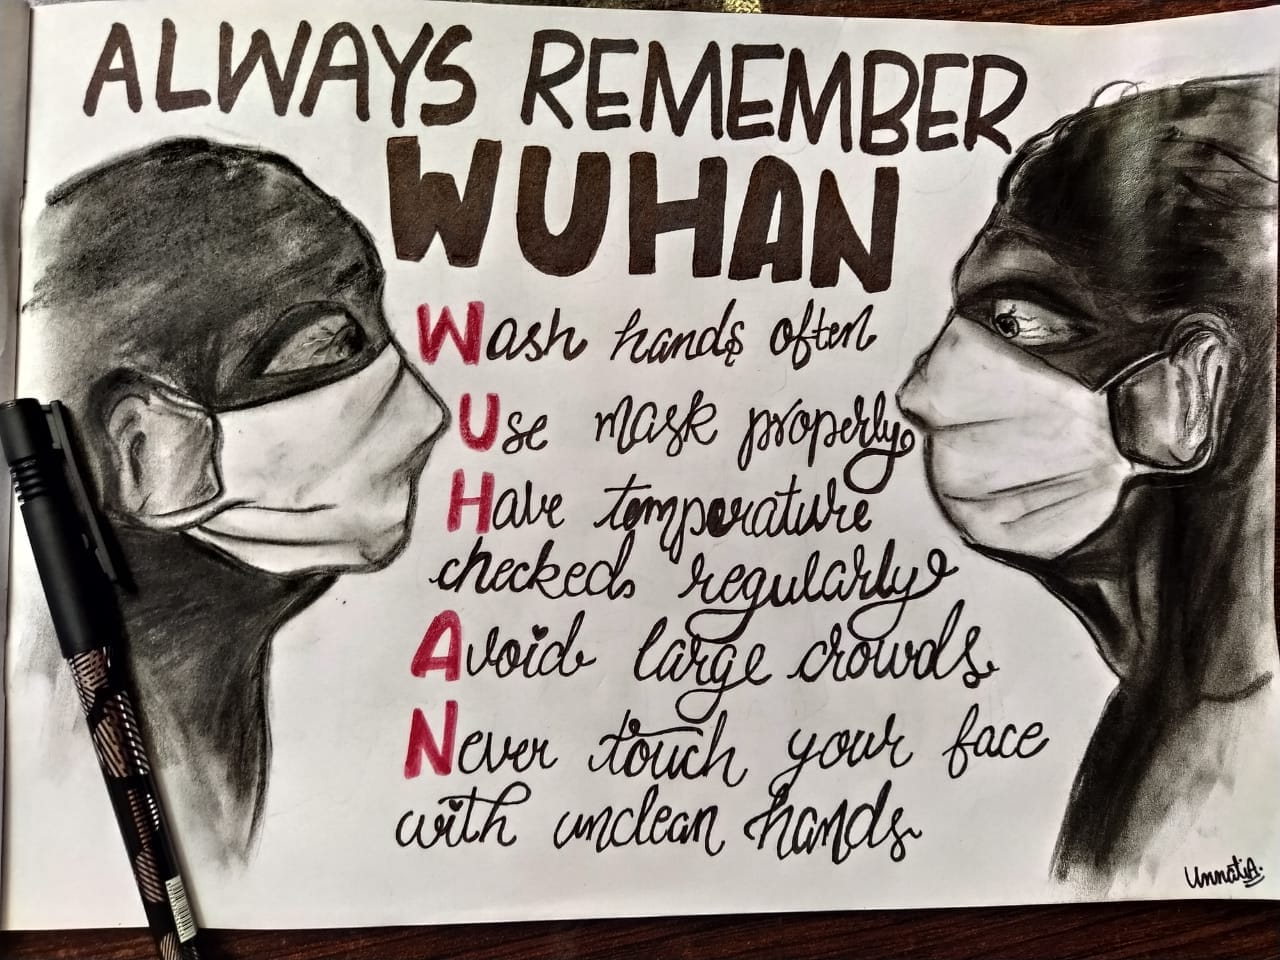 ALWAYS REMEMBER
WUHAN
Wash hands often
Use mask properly
Have temperature
checked regularly
Avoid large crowds
Never touch your face
with unclean hands
UnnatiA.